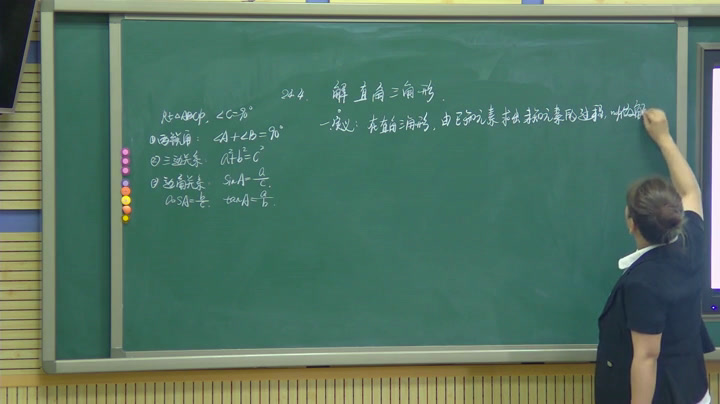 24.4. 解直角三角形.
Rt△ABC中, ∠C=90°
①两锐角: ∠A+∠B=90°
②三边关系: a²+b²=c²
③边角关系: sinA=a/c.
cosA=b/c. tanA=a/b.
一.定义: 在直角三角形, 由已知元素求出未知元素的过程, 叫做解